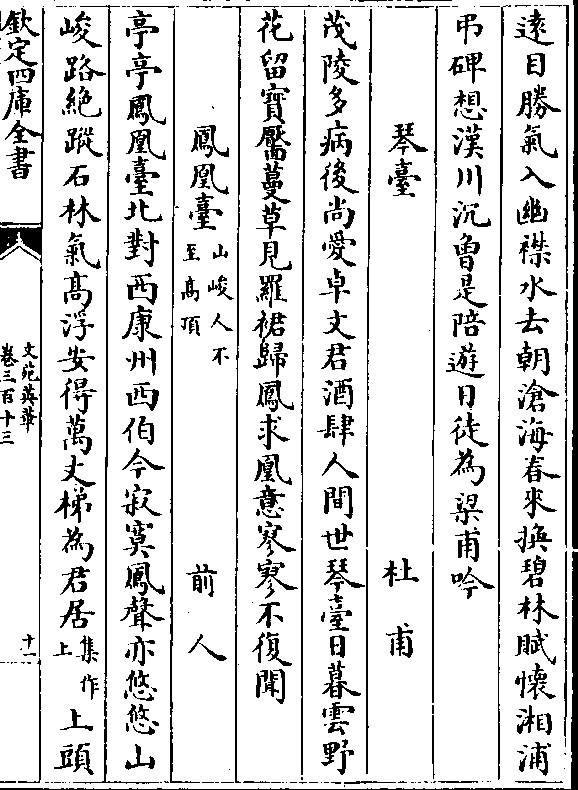 逺目勝氣入幽襟水去朝滄海春來換碧林賦懷湘浦
弔碑想漢川沉曾是陪遊日徒為梁甫吟
琴臺 杜甫
茂陵多病後尚愛卓文君酒肆人間世琴臺日暮雲野
花留寳靨蔓草見羅裙歸鳳求凰意寥寥不復聞
鳳凰臺 山峻人不至髙頂 前人
亭亭鳳凰臺北對西康州西伯今寂寞鳳聲亦悠悠山
峻路絶蹤石林氣髙浮安得萬丈梯為君居集作上上頭
欽定四庫全書
文苑英華
卷三百十三
十一